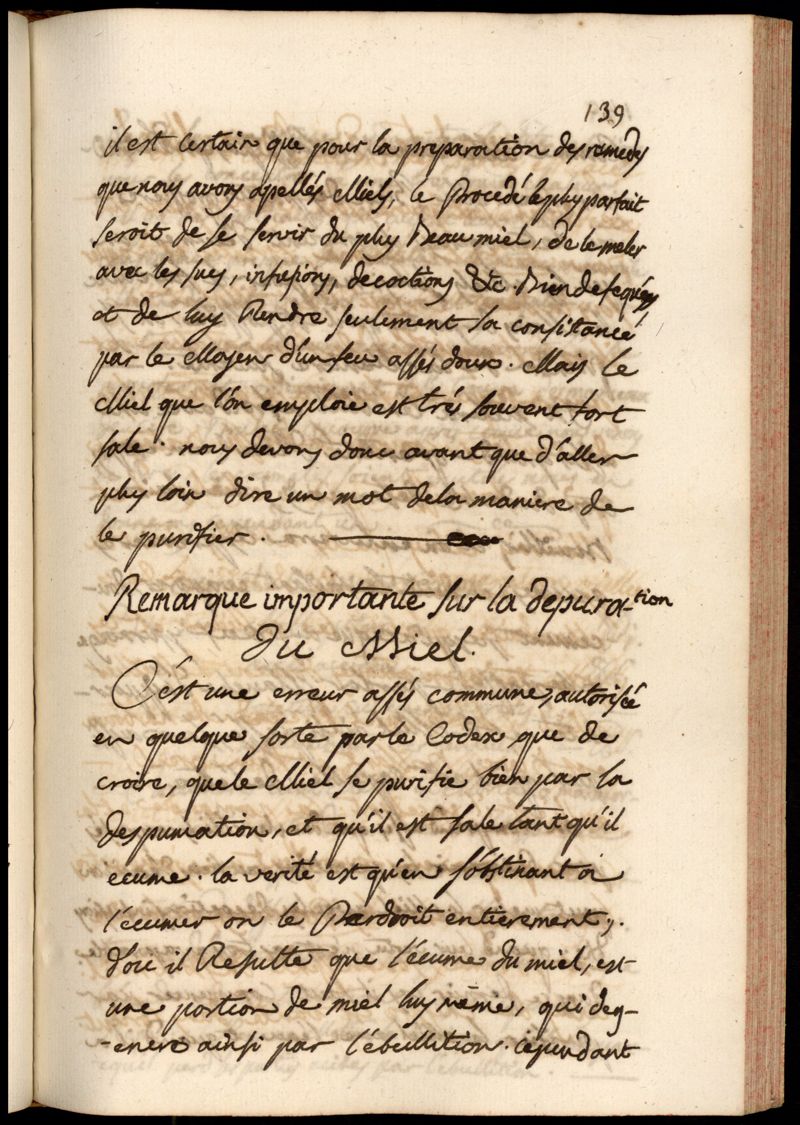 139
il est certain que pour la preparation des remedes
que nous avons apellés Miels, le Procedé le plus parfait
seroit de se servir du plus Beau miel, de le meler
avec les sucs, infusions, decoctions &c. Bien defequés,
et de luy Rendre seulement sa consistance
par le Moyen d'un feu assés doux. Mais le
Miel que l'on emploie est trés souvent fort
sale. nous devons donc avant que d'aller
plus loin dire un mot de la maniere de
le purifier.
Remarque importante sur la depuration
du Miel.
C'est une erreur assés commune, autorisée
en quelque sorte par le Codex que de
croire, que le Miel se purifie bien par la
despumation, et qu'il est sale tant qu'il
ecume. la verité est qu'en s'obstinant à
l'ecumer on le Perdroit entierement,.
d'ou il Resulte que l'écume du miel, est
une portion de miel luy même, qui deg-
-enere ainsi par l'ébullition. cependant